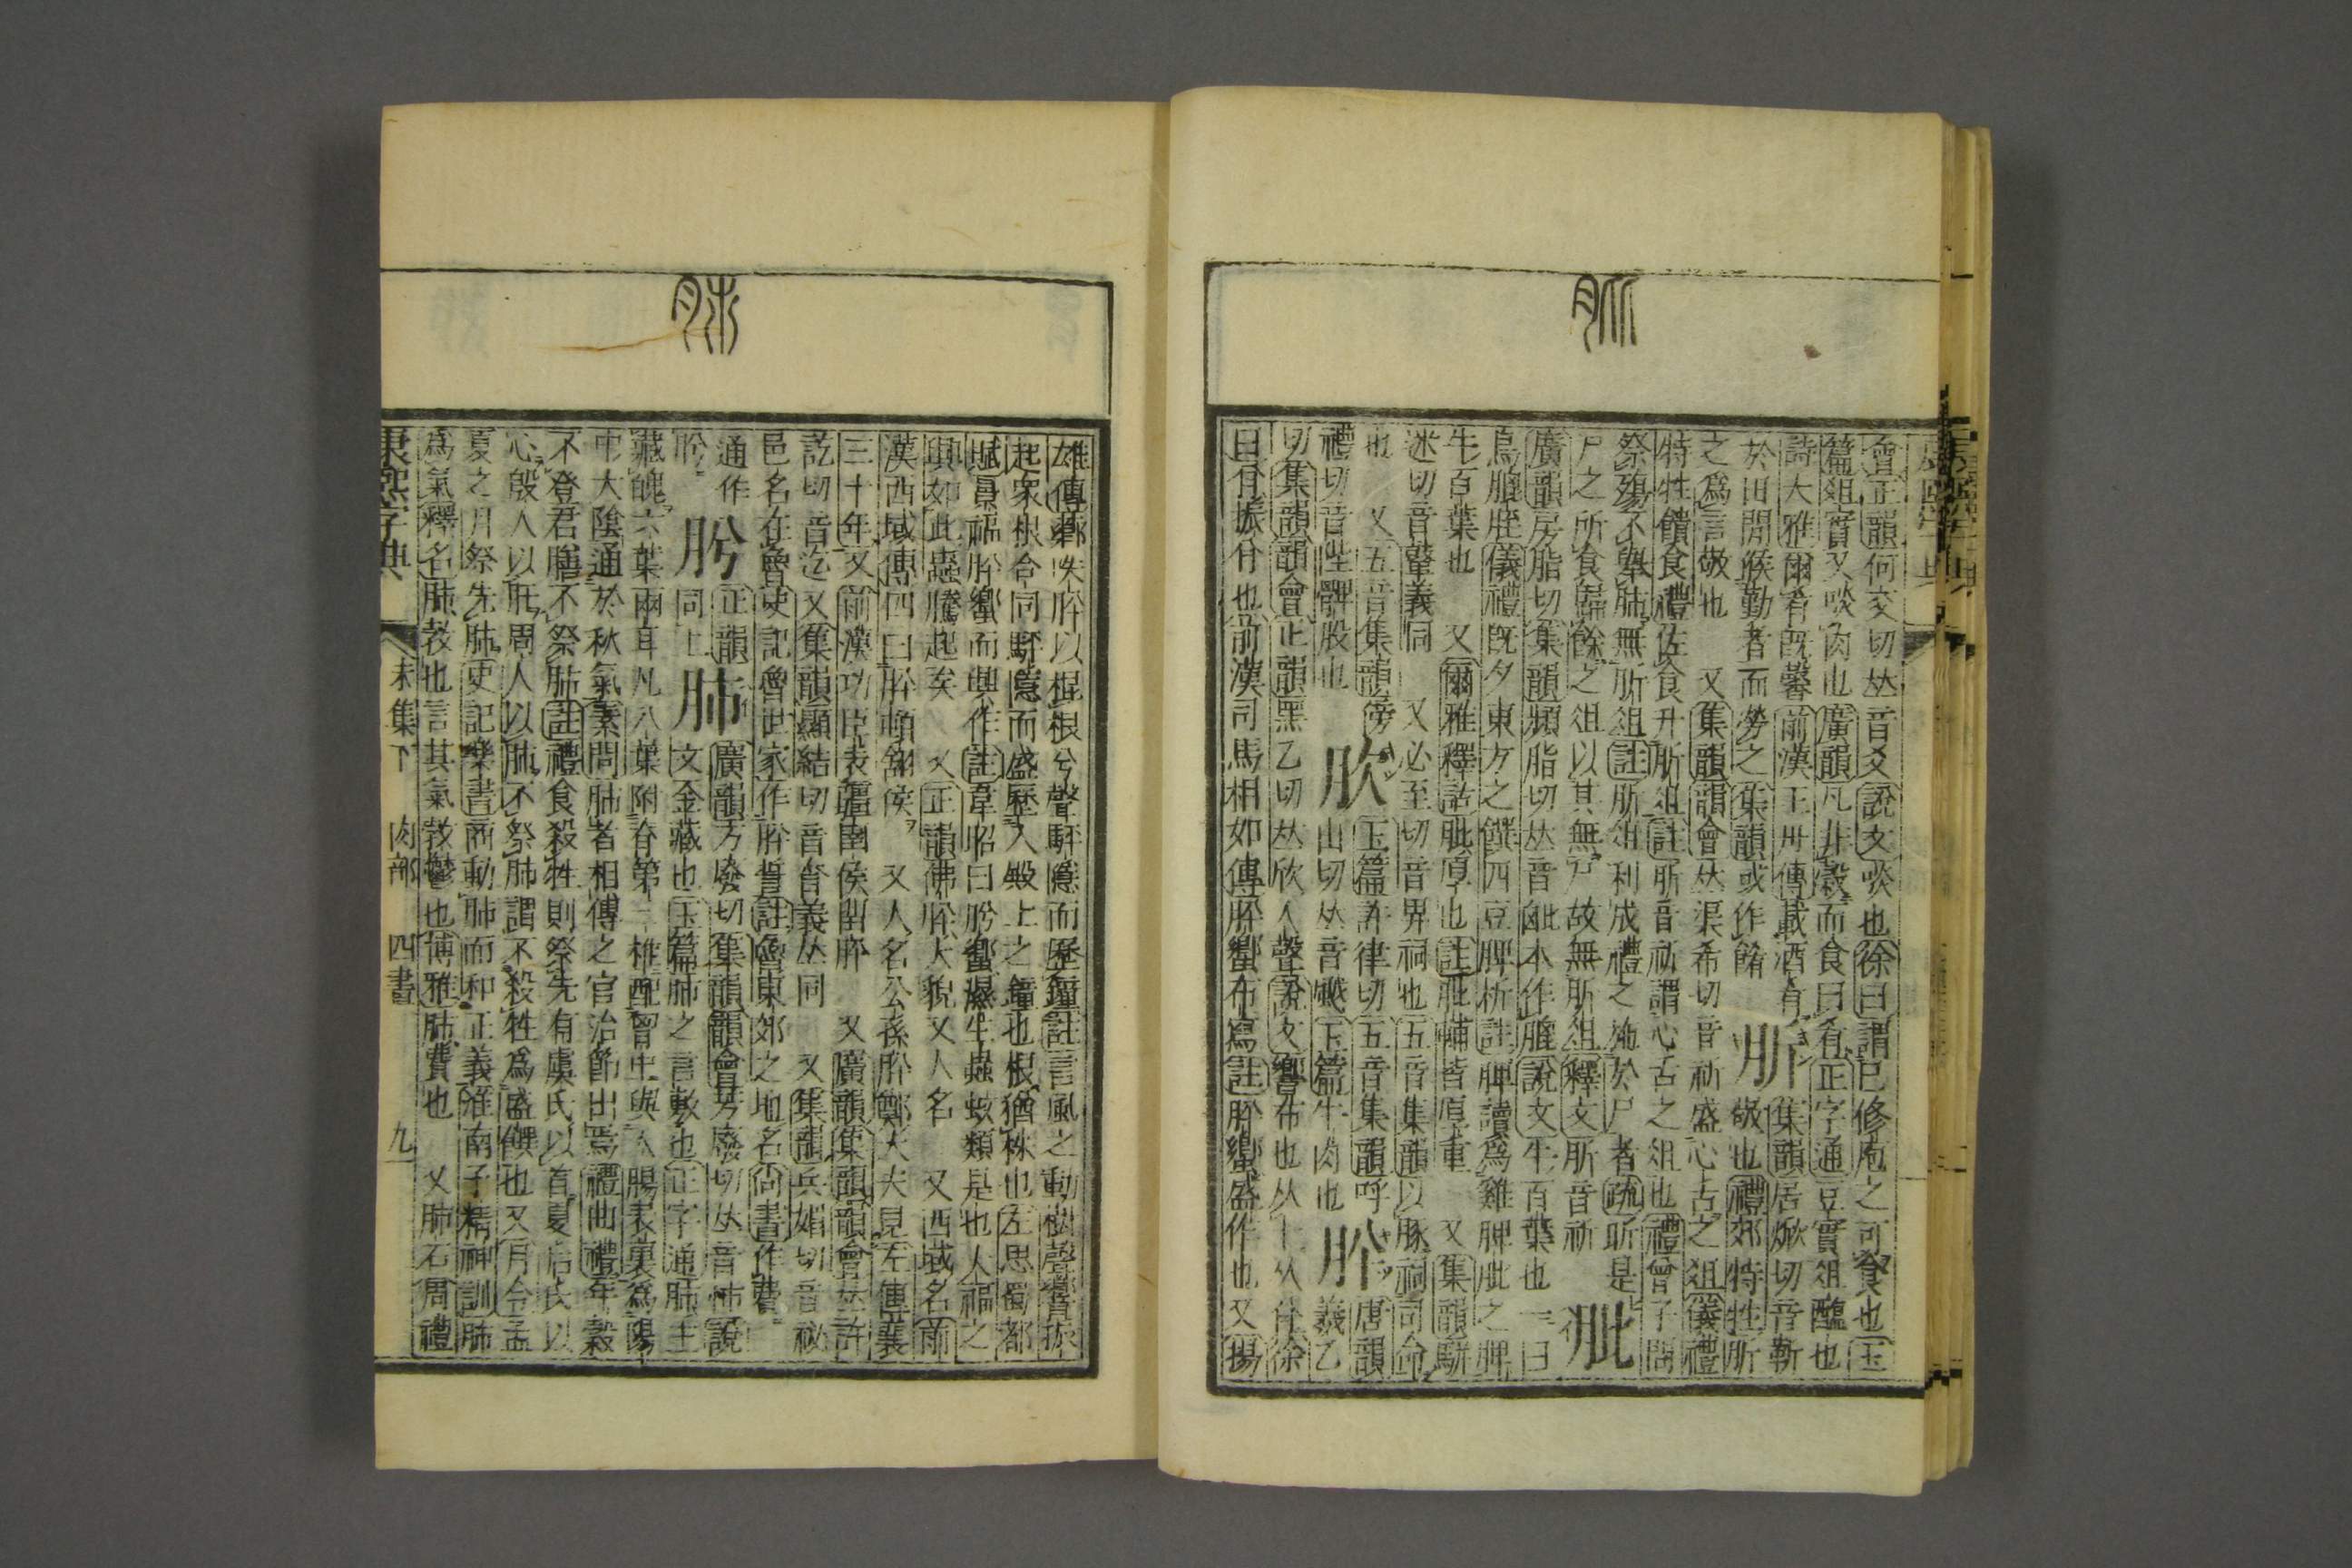 會正韻何交切𠀤音爻說文啖也徐曰謂已修庖之可食也玉
篇俎實又啖肉也廣韻凡非穀而食曰肴正字通豆實俎醢也
詩大雅爾肴旣馨前漢王丹傳載酒肴
於田閒候勤者而勞之集韻或作餚 肵 集韻居焮切音靳敬也禮郊特牲肵
之爲言敬也 又集韻韻會𠀤渠希切音祈盛心古之俎儀禮
特牲饋食禮佐食升肵俎註肵音祈謂心舌之俎也禮曾子問
祭殤不舉肺無肵俎註肵俎利成禮之施於尸者疏肵是
尸之所食歸餘之俎以其無尸故無肵俎釋文肵音祈 肶
廣韻房脂切集韻頻脂切𠀤音毗本作膍說文牛百葉也一曰
鳥膍胵儀禮旣夕東方之饌四豆脾析註脾讀爲雞脾肶之脾
牛百葉也 又爾雅釋詁肶厚也註肶輔皆厚重 又集韻駢
迷切音鼙義同 又必至切音畀祠也五音集韻以豚祠司命
也 又五音集韻傍
禮切音陛髀股也 肷 玉篇許律切五音集韻呼
山切𠀤音颰玉篇牛肉也 肸 唐韻羲乙
切集韻韻會正韻黑乙切𠀤欣入聲說文響布也从十从㕣徐
曰㕣振㕣也前漢司馬相如傳肸蠁布寫註肸蠁盛作也又揚
康熙字典
雄傳薌呹肸以棍根兮聲駍隱而歷鐘註言風之動樹聲響振
起衆根合同駍隱而盛歷入殿上之鐘也根猶株也左思蜀都
賦景福肸蠁而興作註韋昭曰肸蠁濕生蟲蚊類是也大福之
興如此蟲騰起矣 又正韻佛肸大貌又人名 又西域名前
漢西域傳四曰肸頓翎侯 又人名公孫肸鄭大夫見左傳襄
三十年又前漢功臣表疆圉侯留肸 又廣韻集韻韻會𠀤許
訖切音迄又集韻顯結切音㕣義𠀤同 又集韻兵媚切音祕
邑名在魯史記魯世家作肸誓註魯東郊之地名尙書作費
通作肸 肹 正韻同上 肺 廣韻方廢切集韻韻會芳廢切𠀤音杮說
文金藏也玉篇肺之言敷也正字通肺主
藏魄六葉兩耳凡八葉附脊第三椎配胷中與大腸表裏爲陽
中大陰通於秋氣素問肺者相傅之官治節出焉禮曲禮年穀
不登君膳不祭肺註禮食殺牲則祭先有虞氏以首夏后氏以
心殷人以肝周人以肺不祭肺謂不殺牲爲盛饌也又月令孟
夏之月祭先肺史記樂書商動肺而和正義淮南子精神訓肺
爲氣釋名肺敎也言其氣敎鬱也博雅肺費也 又肺石周禮
康熙字典 未集下 肉部 四畫 九